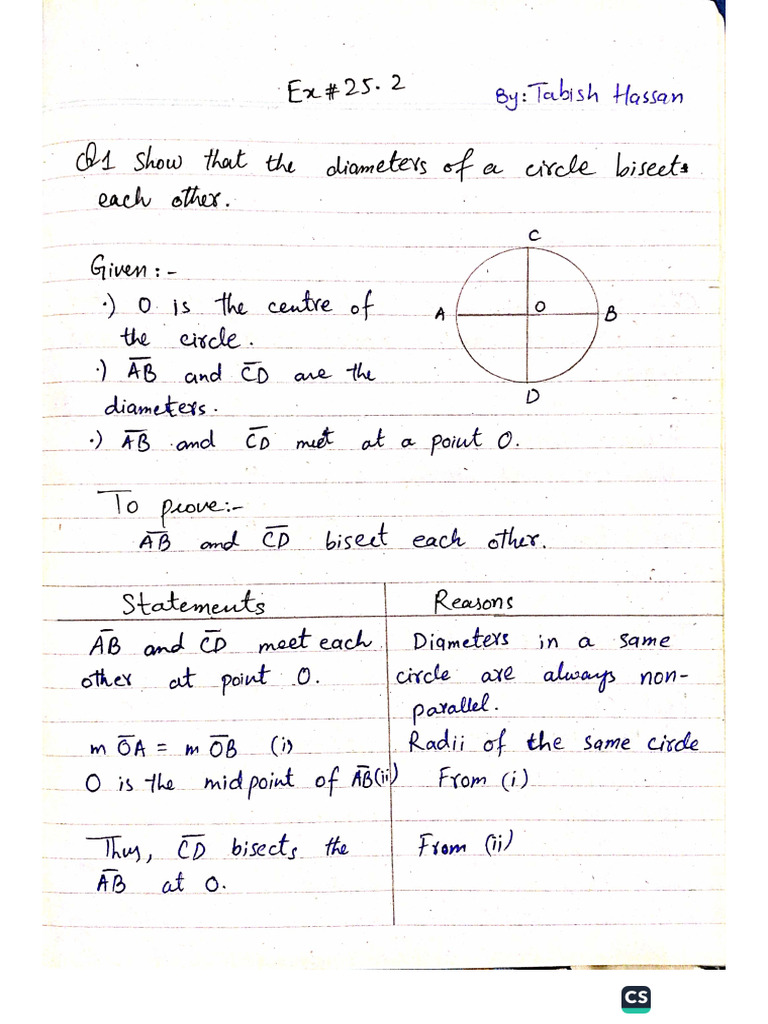 Ex#25.2
By: Tabish Hassan
Q1 Show that the diameters of a circle bisects
each other.
C
Given:-
·) O is the centre of
A O B
the circle.
·) A̅B̅ and C̅D̅ are the
D
diameters.
·) A̅B̅ and C̅D̅ meet at a point O.
To prove:-
A̅B̅ and C̅D̅ bisect each other.
Statements Reasons
A̅B̅ and C̅D̅ meet each Diameters in a same
other at point O. circle are always non-
parallel.
m O̅A̅ = m O̅B̅ (i) Radii of the same circle
O is the midpoint of A̅B̅ (ii) From (i)
Thus, C̅D̅ bisects the From (ii)
A̅B̅ at O.
CS